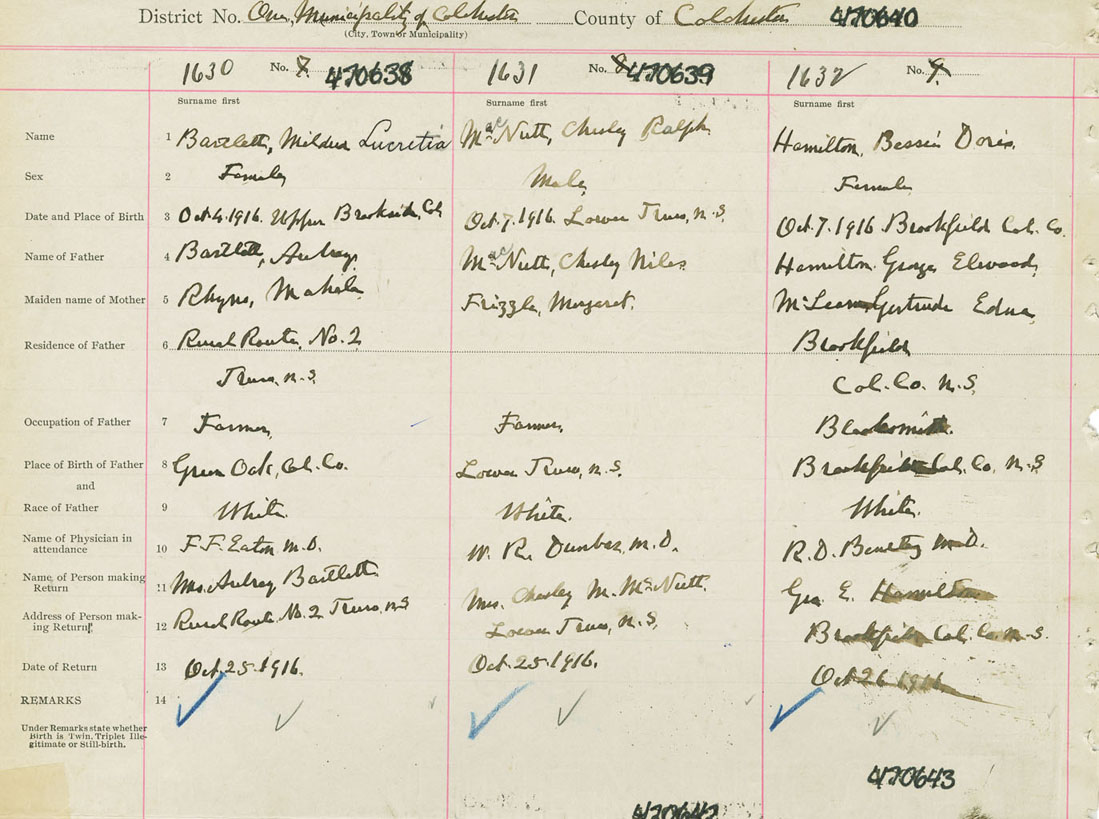 District No. One, Municipality of Colchester County of Colchester 470640
(City, Town or Municipality)
1630 No. 7. 470638 1631 No. 8 470639 1632 No. 9.
Surname first Surname first Surname first
Name 1 Bartlett, Mildred Lucretia MacNutt, Chesley Ralph Hamilton, Bessie Doris.
Sex 2 Female Male Female
Date and Place of Birth 3 Oct. 4. 1916. Upper Brookside, Col. Oct. 7. 1916. Lower Truro, N.S. Oct. 7. 1916 Brookfield Col. Co.
Name of Father 4 Bartlett, Aubrey. MacNutt, Chesley Niles Hamilton. George Elwood
Maiden name of Mother 5 Rhyno, Mahala Frizzle, Margaret. McLean Gertrude Edna
Residence of Father 6 Rural Route, No. 2 Brookfield
Truro, N.S. Col. Co. N.S.
Occupation of Father 7 Farmer, Farmer, Blacksmith.
Place of Birth of Father 8 Green Oak, Col. Co. Lower Truro, N.S. Brookfield Col. Co. N.S
and
Race of Father 9 White. White. White.
Name of Physician in
attendance 10 F. F. Eaton, M.D. W. R. Dunbar, M.D. R. D. M.D.
Name of Person making
Return 11 Mrs. Aubrey Bartlett Mrs. Chesley M. McNutt. Geo E. Hamilton
Address of Person mak-
ing Return 12 Rural Route No. 2 Truro, N.S Lower Truro, N.S. Brookfield Col. Co. N.S.
Date of Return 13 Oct. 25. 1916. Oct. 25. 1916. Oct 26 1916
REMARKS 14
Under Remarks state whether
Birth is Twin, Triplet Ille-
gitimate or Still-birth.
470643
470642